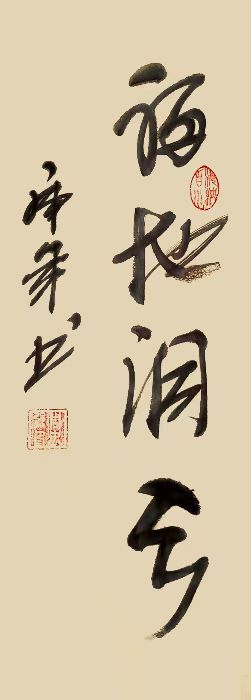 福地洞天
庚年书